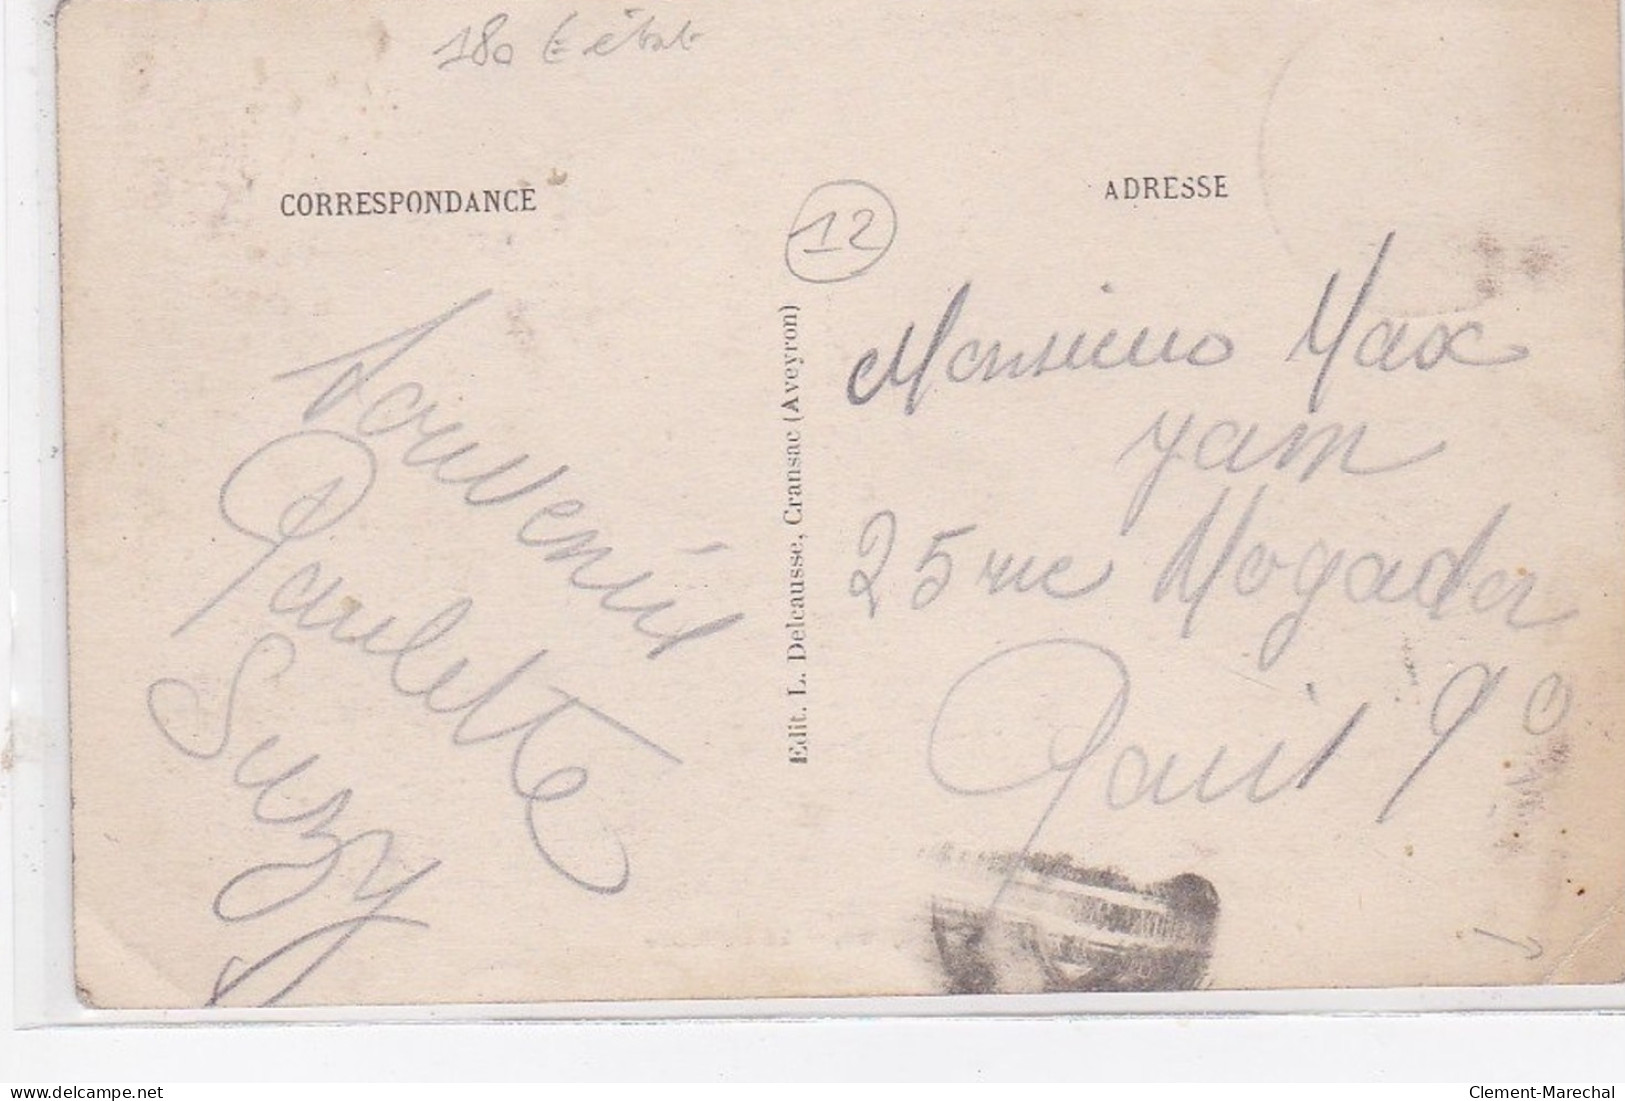 180 € état
CORRESPONDANCE
ADRESSE
12
Souvenir
Paulette
Suzy
Edit. L. Delcausse, Cransac (Aveyron)
Monsieur Max
Yam
25 rue Mogador
Paris 9e
delcampe.net
Clement-Marechal